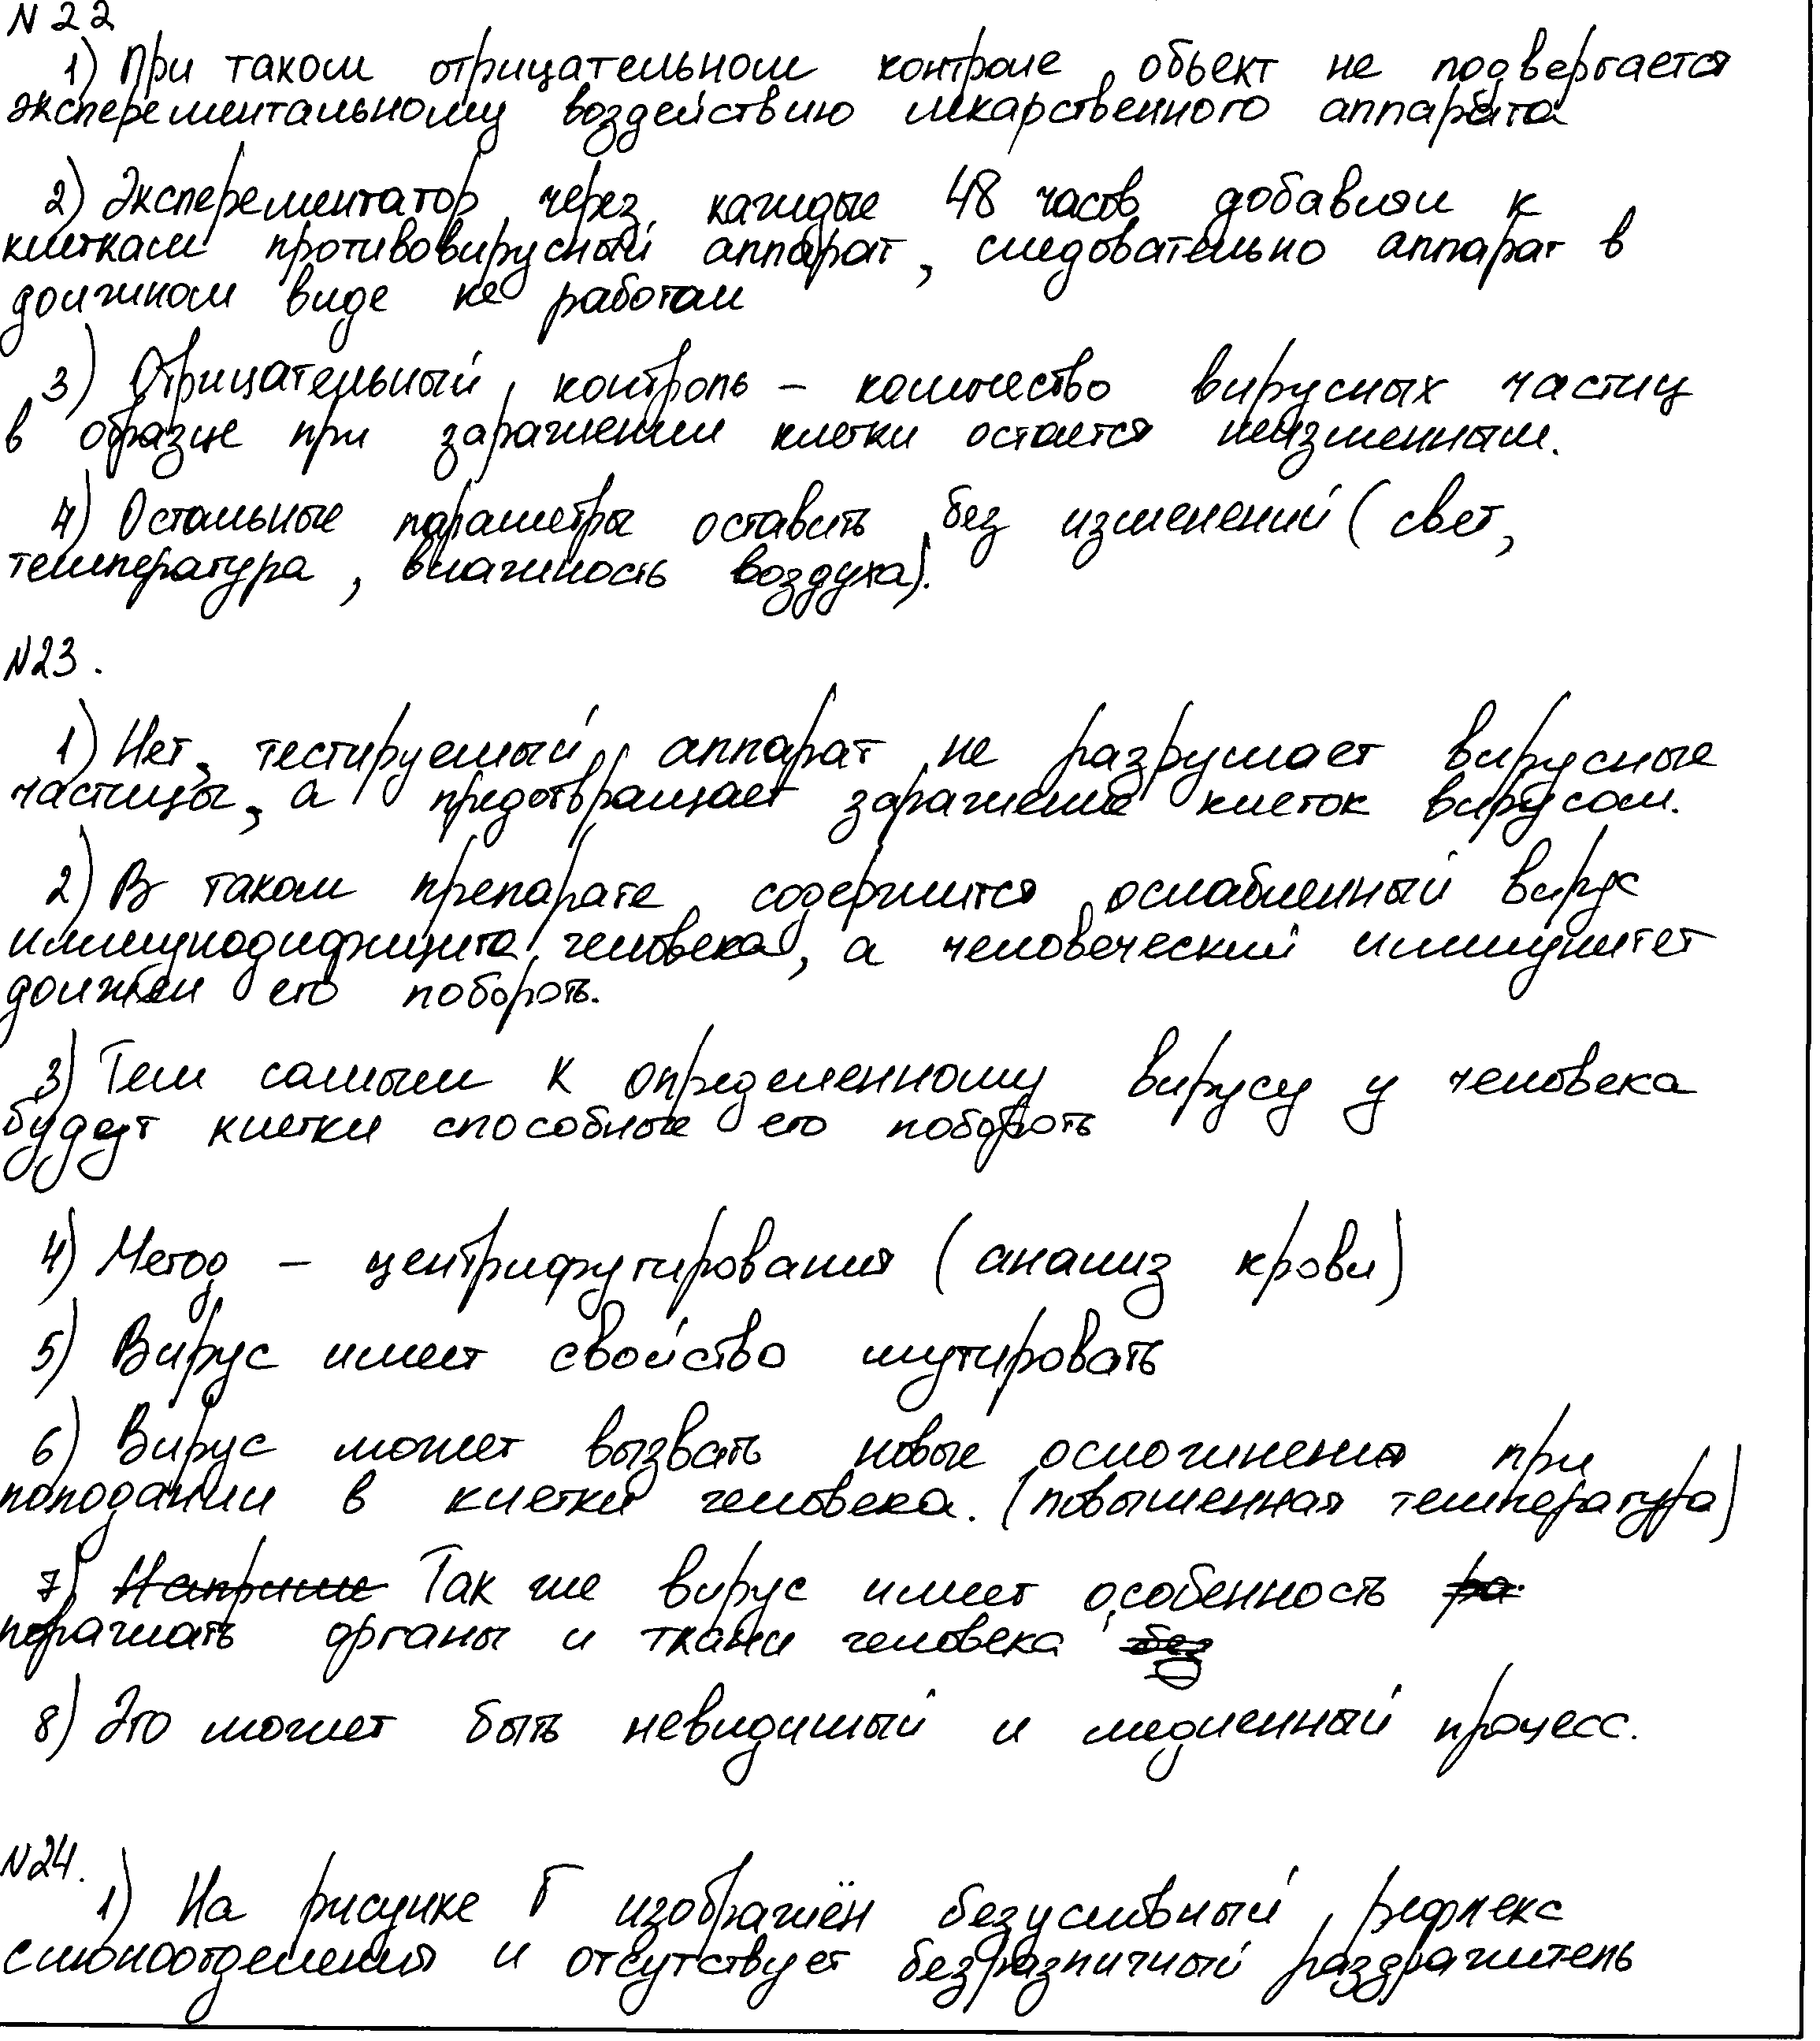 N 22
1) При таком отрицательном контроле объект не подвергается
эксперементальному воздействию лекарственного аппарата
2) Эксперементатор через каждые 48 часов добавлял к
клеткам противовирусный аппарат, следовательно аппарат в
должном виде не работал
3) Отрицательный контроль – количество вирусных частиц
в образце при заражении клетки остается неизменным.
4) Остальные параметры оставить без изменений (свет,
температура, влажность воздуха).
N23.
1) Нет, тестируемый аппарат не разрушает вирусные
частицы, а предотвращает заражение клеток вирусом.
2) В таком препарате содержится ослабленный вирус
иммунодифицита человека, а человеческий иммунитет
должен его побороть.
3) Тем самым к определенному вирусу у человека
будут клетки способные его побороть
4) Метод – центрифугирования (анализ крови)
5) Вирус имеет свойство мутировать
6) Вирус может вызвать новые осложнения при
поподании в клетки человека. (повышенная температура)
7) Наприме Так же вирус имеет особенность ра
поражать органы и ткани человека без
8) Это может быть невидимый и медленный процесс.
N24.
1) На рисунке Г изображён безусловный рефлекс
слюноотделения и отсутствует безразличный раздражитель